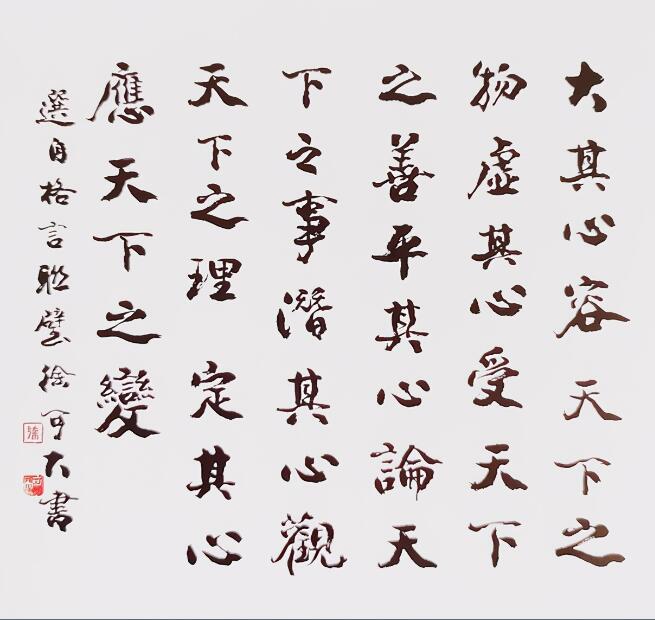 大其心容天下之
物虛其心受天下
之善平其心論天
下之事潛其心觀
天下之理定其心
應天下之變
選自格言聯璧徐可大書